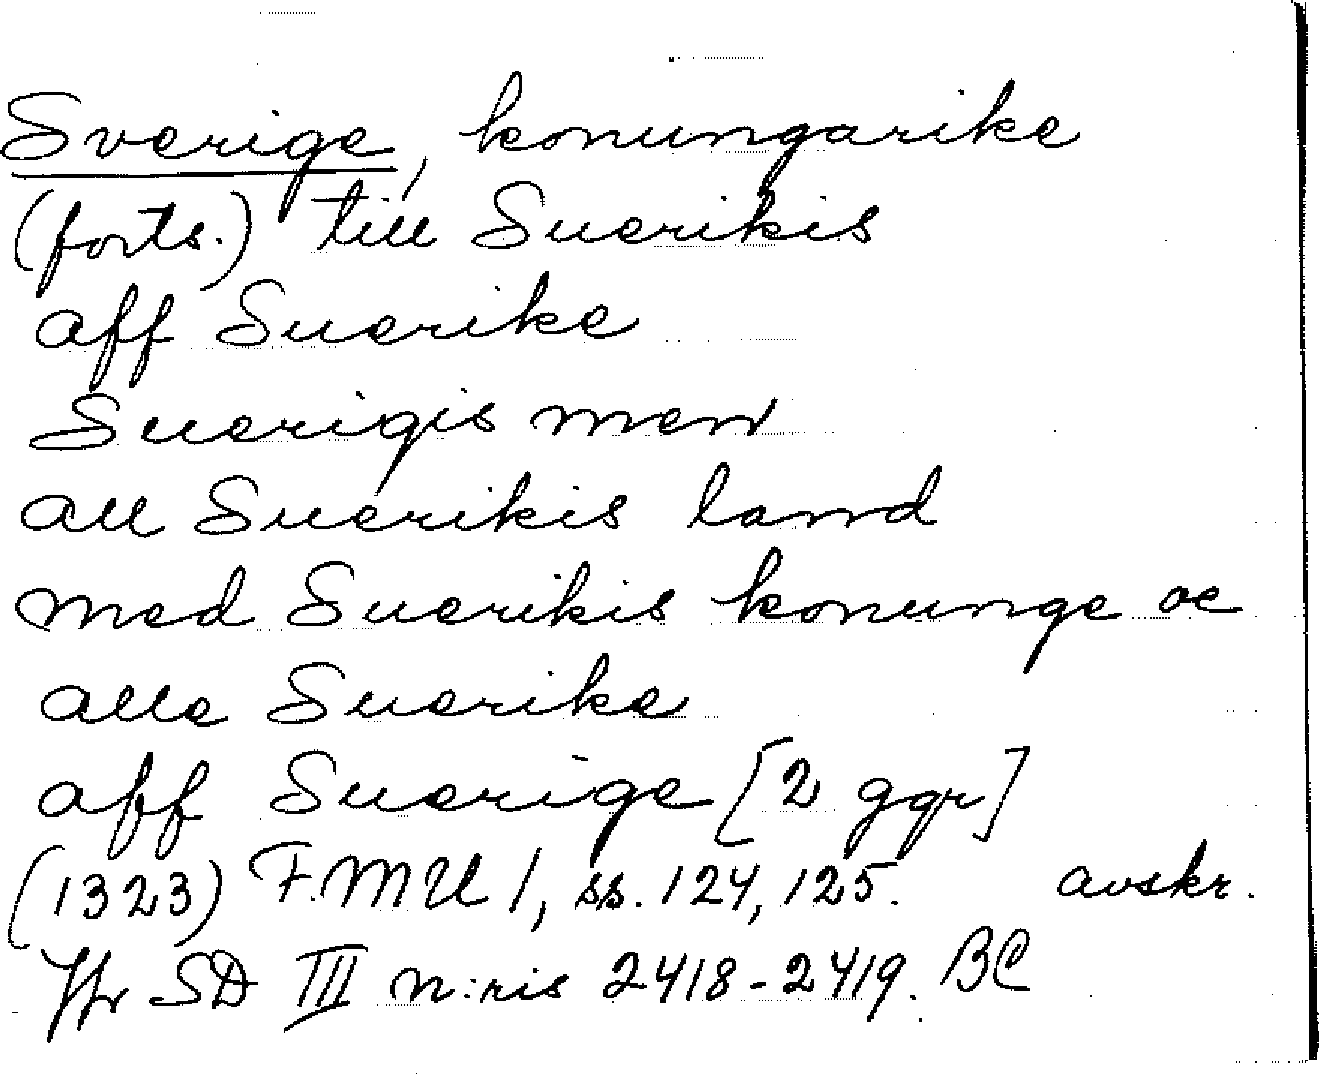 Sverige, konungarike
(forts.) till Suerikis
aff Suerike
Suerigis men
all Suerikis land
med Suerikis konunge oc
alle Suerike
aff Suerige [2 ggr]
(1323) FMU 1, ss. 124, 125. avskr.
Jfr SD III n:ris 2418-2419. BC